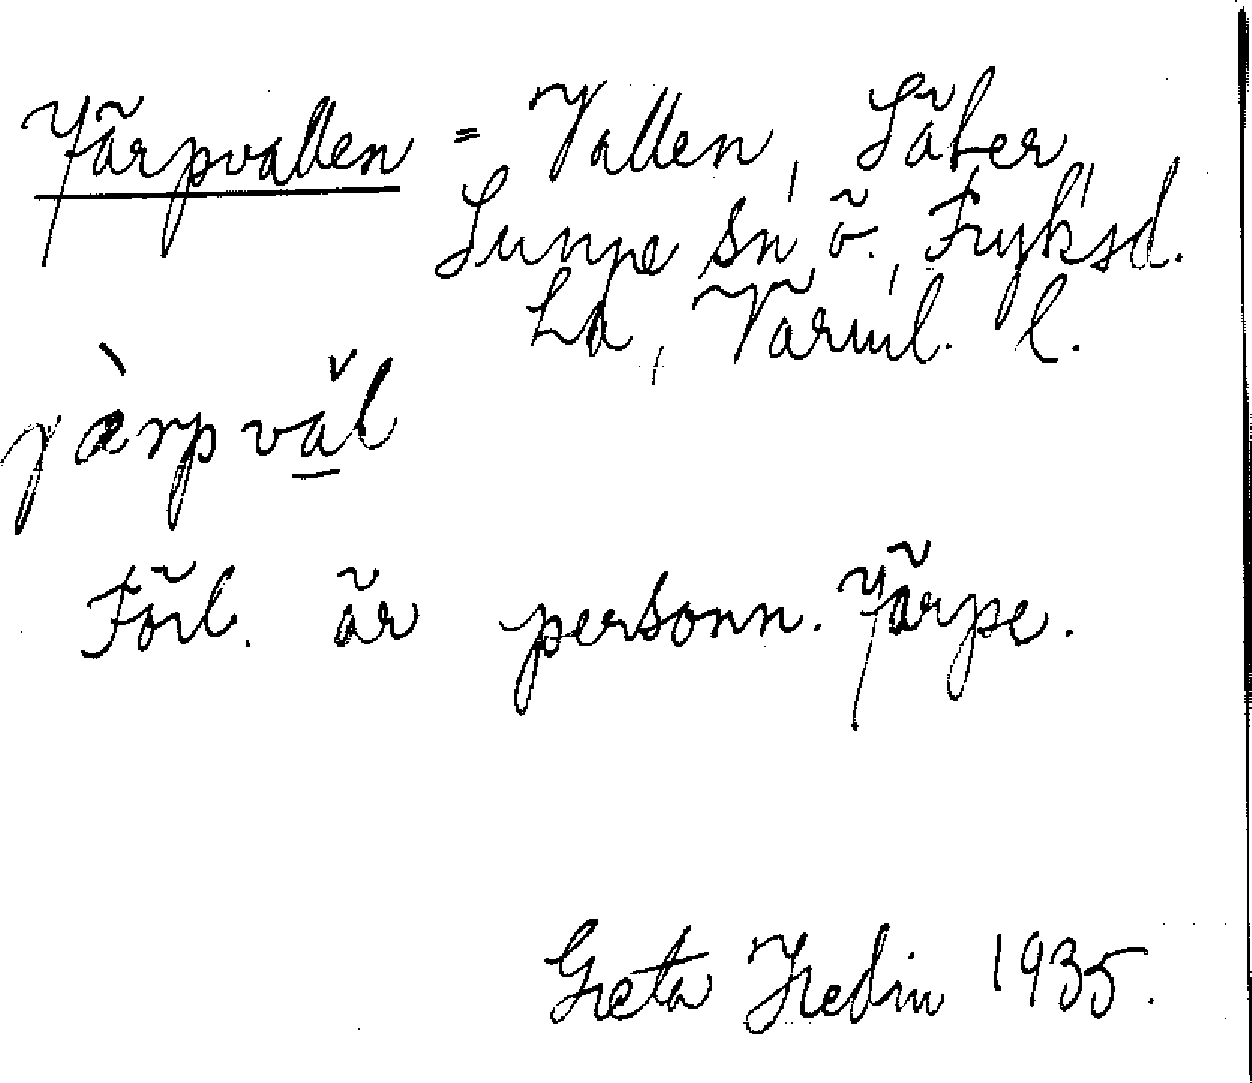 Järpvallen = Vallen, Säter,
Sunne sn, ö. Fryksd.
hd, Värml. l.
jä̀rpvăl
Förl. är personn. Järpe.
Greta Hedin 1935.